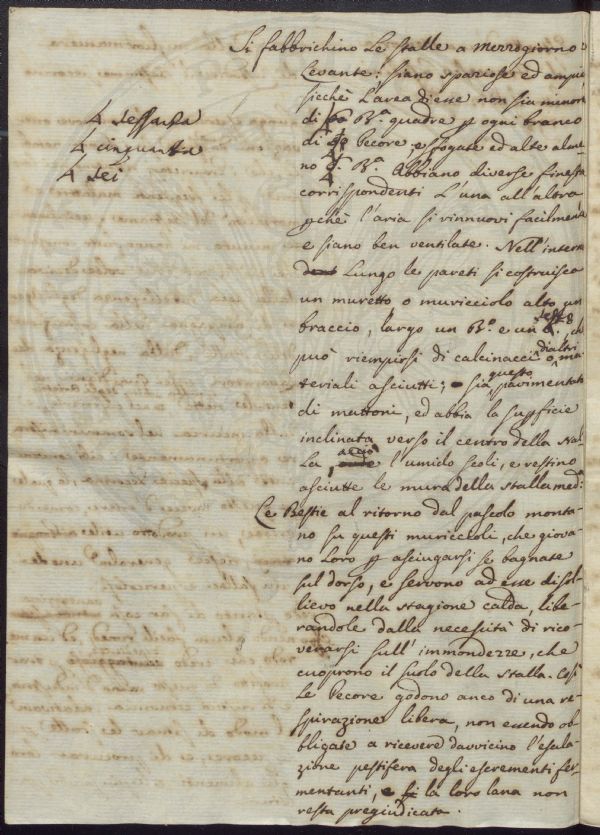 Si fabbrichino Le stalle a mezzogiorno o
Levante: siano spaziose ed ampie
sicchè L'area di esse non sia minore
di 60 B.a quadre p ogni branco
di 50 Pecore, e sfogate ed alte alme-
no 6. B.a Abbiano diverse finestre
corrispondenti L'una all'altra
pchè l'aria si rinnuovi facilmente
e siano ben ventilate. Nell'interno
Lungo le pareti si costruisca
un muretto o muricciolo alto un
braccio, largo un B.o e un che
può riempirsi di calcinacci o di altri ma-
teriali asciutti; sia questo pavimentato
di mattoni, ed abbia la supficie
inclinata verso il centro della stal-
La, acciò l'umido scoli, e restino
asciutte le mura della stalla med:a
Le Bestie al ritorno dal pascolo monta-
no su questi muriccioli, che giova-
no Loro p asciugarsi se bagnate
sul dorso, e servono ad esse di sol-
lievo nella stagione calda, libe-
randole dalla necessità di rico-
verarsi sull'immondezze, che
cuoprono il suolo della stalla. Così
le Pecore godono anco di una re-
spirazione libera, non essendo ob-
bligate a ricevere davvicino l'esala-
zione pestifera degli escrementi fer-
mentanti, e la loro lana non
resta pregiudicata.
4 sessanta
4 cinquanta
4 sei